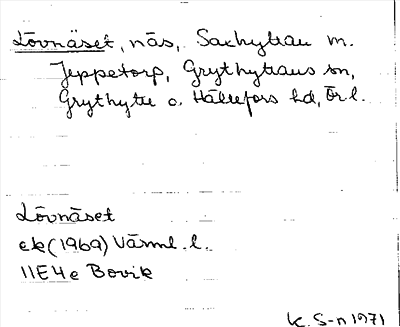 Lövnäset, näs, Saxhyttan m.
Jeppetorp, Grythyttans sn,
Grythytte o. Hällefors hd, Ör. l.
Lövnäset
ek (1969) Värml. l.
11E4e Bovik
K. S-n 1971